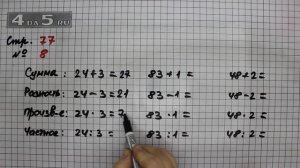 4DA5.RU
Стр. 77
№ 8
Сумма: 24+3=27 83+1= 48+2=
Разность: 24-3=21 83-1= 48-2=
Произв-е: 24·3=7 83·1= 48·2=
Частное: 24:3= 83:1= 48:2=